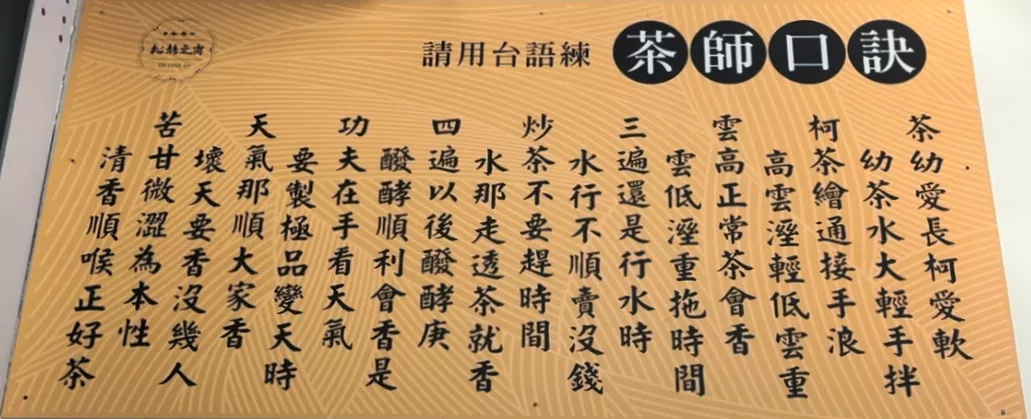 請用台語練 茶師口訣
茶幼愛長柯愛軟
幼茶水大輕手拌
柯茶繪通接手浪
高雲溼輕低雲重
雲高正常茶會香
雲低溼重拖時間
三遍還是行水時
水行不順賣沒錢
炒茶不要趕時間
水那走透茶就香
四遍以後醱酵庚
醱酵順利會香是
功夫在手看天氣
要製極品變天時
天氣那順大家香
壞天要香沒幾人
苦甘微澀為本性
清香順喉正好茶